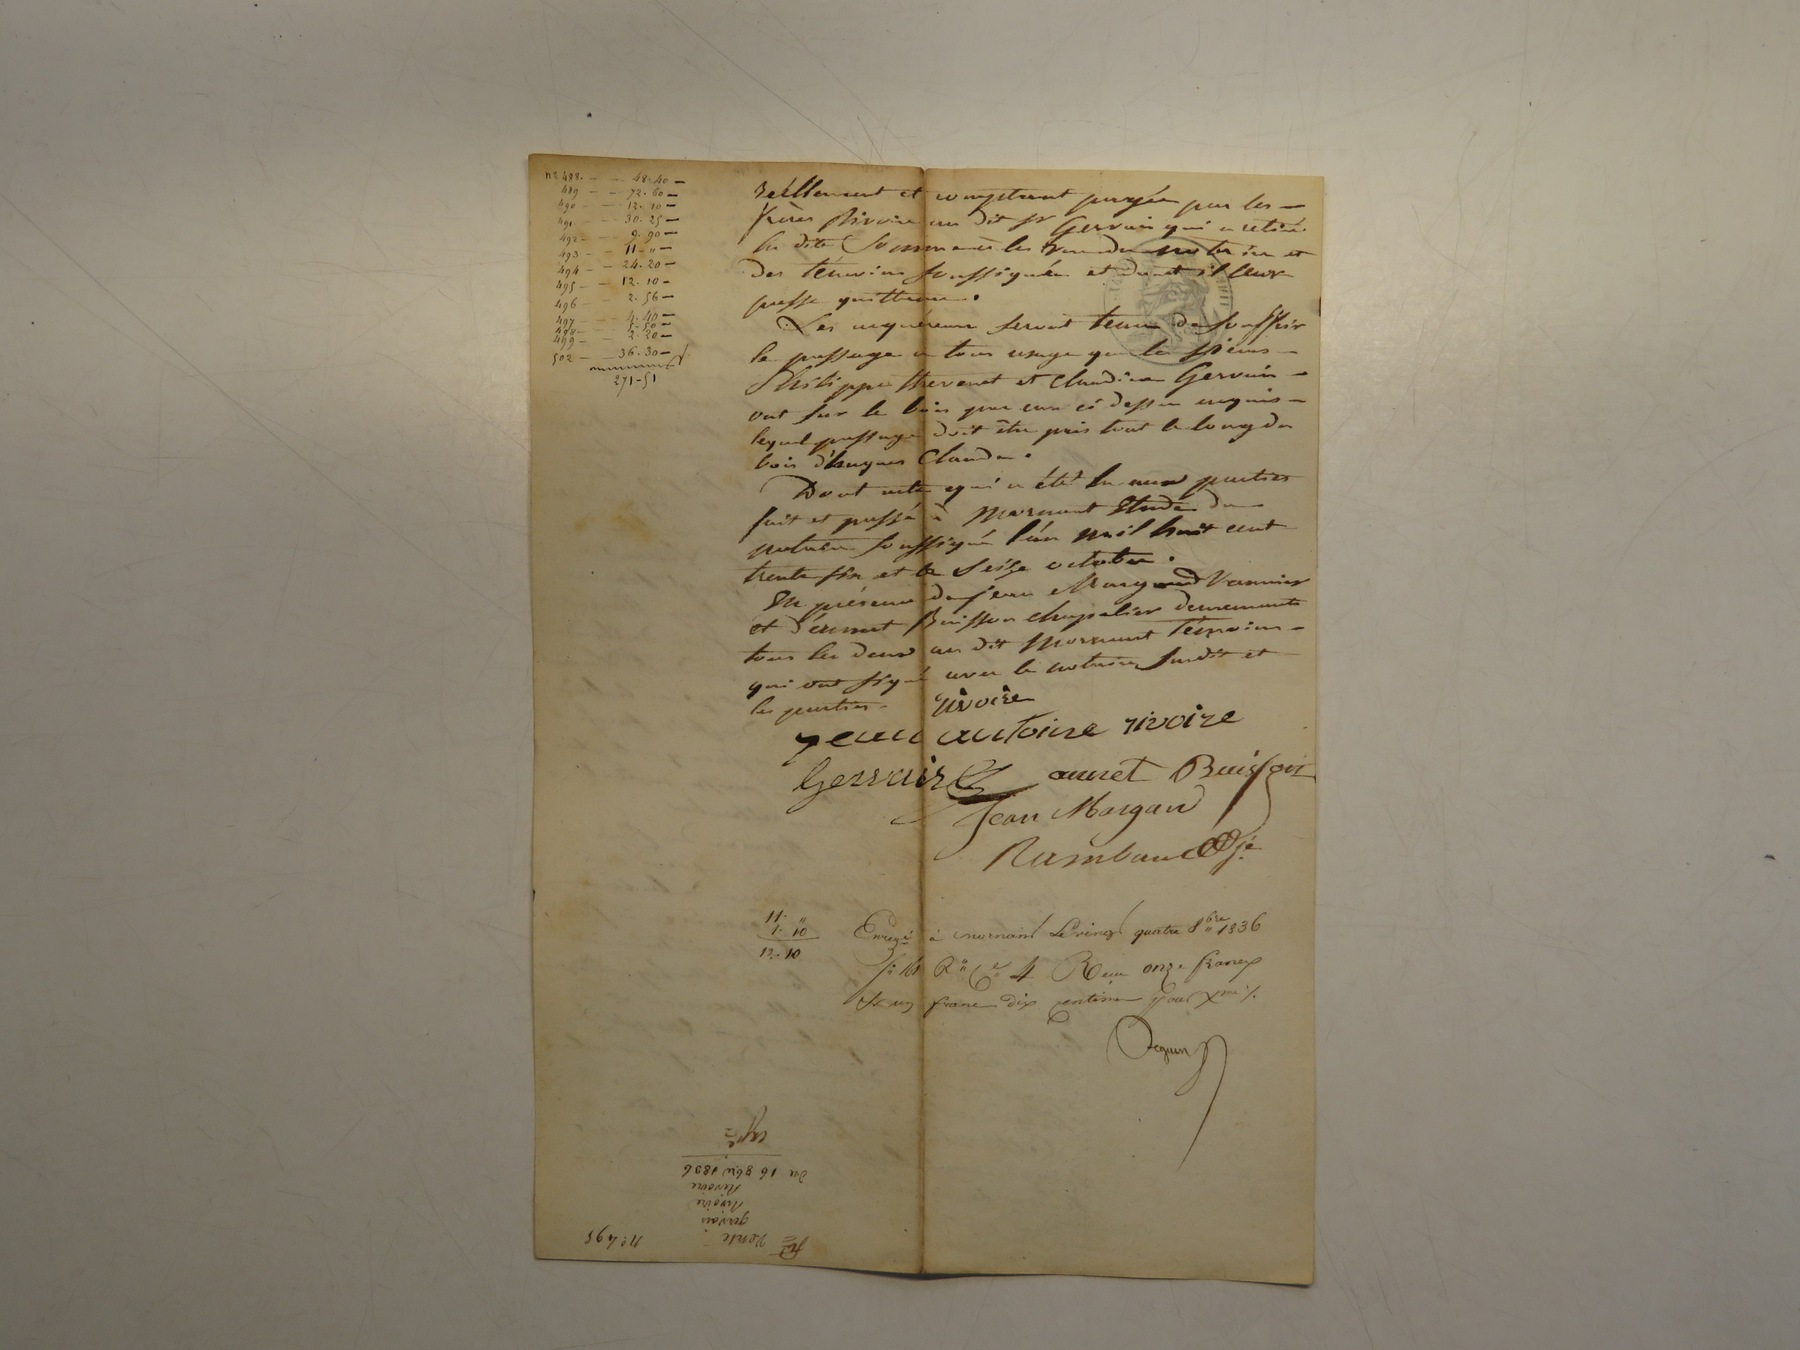 nos 488. - - 48-40 -
489 - - 72. 60 -
490 - - 12. 10 -
491 - - 30. 25 -
492 - - 9. 90 -
493 - - 11 - " -
494 - - 24. 20 -
495 - - 12. 10 -
496 - - 2. 56 -
497 - - 4. 40 -
498 - - 5-50 -
499 - - 2. 20 -
502 - - 36. 30 -
271-51
réellement et comptant payée par les
frères Rivoire au dit Sr Gervais qui a retiré
la dite Somme à les vue du notaire et
des témoins soussignés et dont il leur
passe quittance.
Les acquéreurs seront tenus de souffrir
le passage à tous usages que les sieurs
Philippe thevenet et Claudine Gervais
ont sur le bois par eux ci dessus acquis
lequel passage doit être pris tout le long du
bois d'hugues Claude.
Dont acte qui a été lu aux parties
fait et passé à Mornant Etude du
notaire soussigné l'an mil huit cent
trente six et le seize octobre.
En présence de Jean Margand Vannier
et d'ennet Buisson chapelier demeurants
tous les deux au dit Mornant témoins
qui ont signé avec le notaire susdit et
les parties.
rivoire
jean antoine rivoire
Gervais
annet Buisson
Jean Margand
Rambaud
11. "
1. 10
12. 10
Enregé à mornant Le vingt quatre 8bre 1836
fo 161 Ro Ce 4 Reçu onze francs
& un franc dix centimes pour Xme %.
No 495
Vente
gervais
Rivoire
Rivoire
du 16 8bre 1836